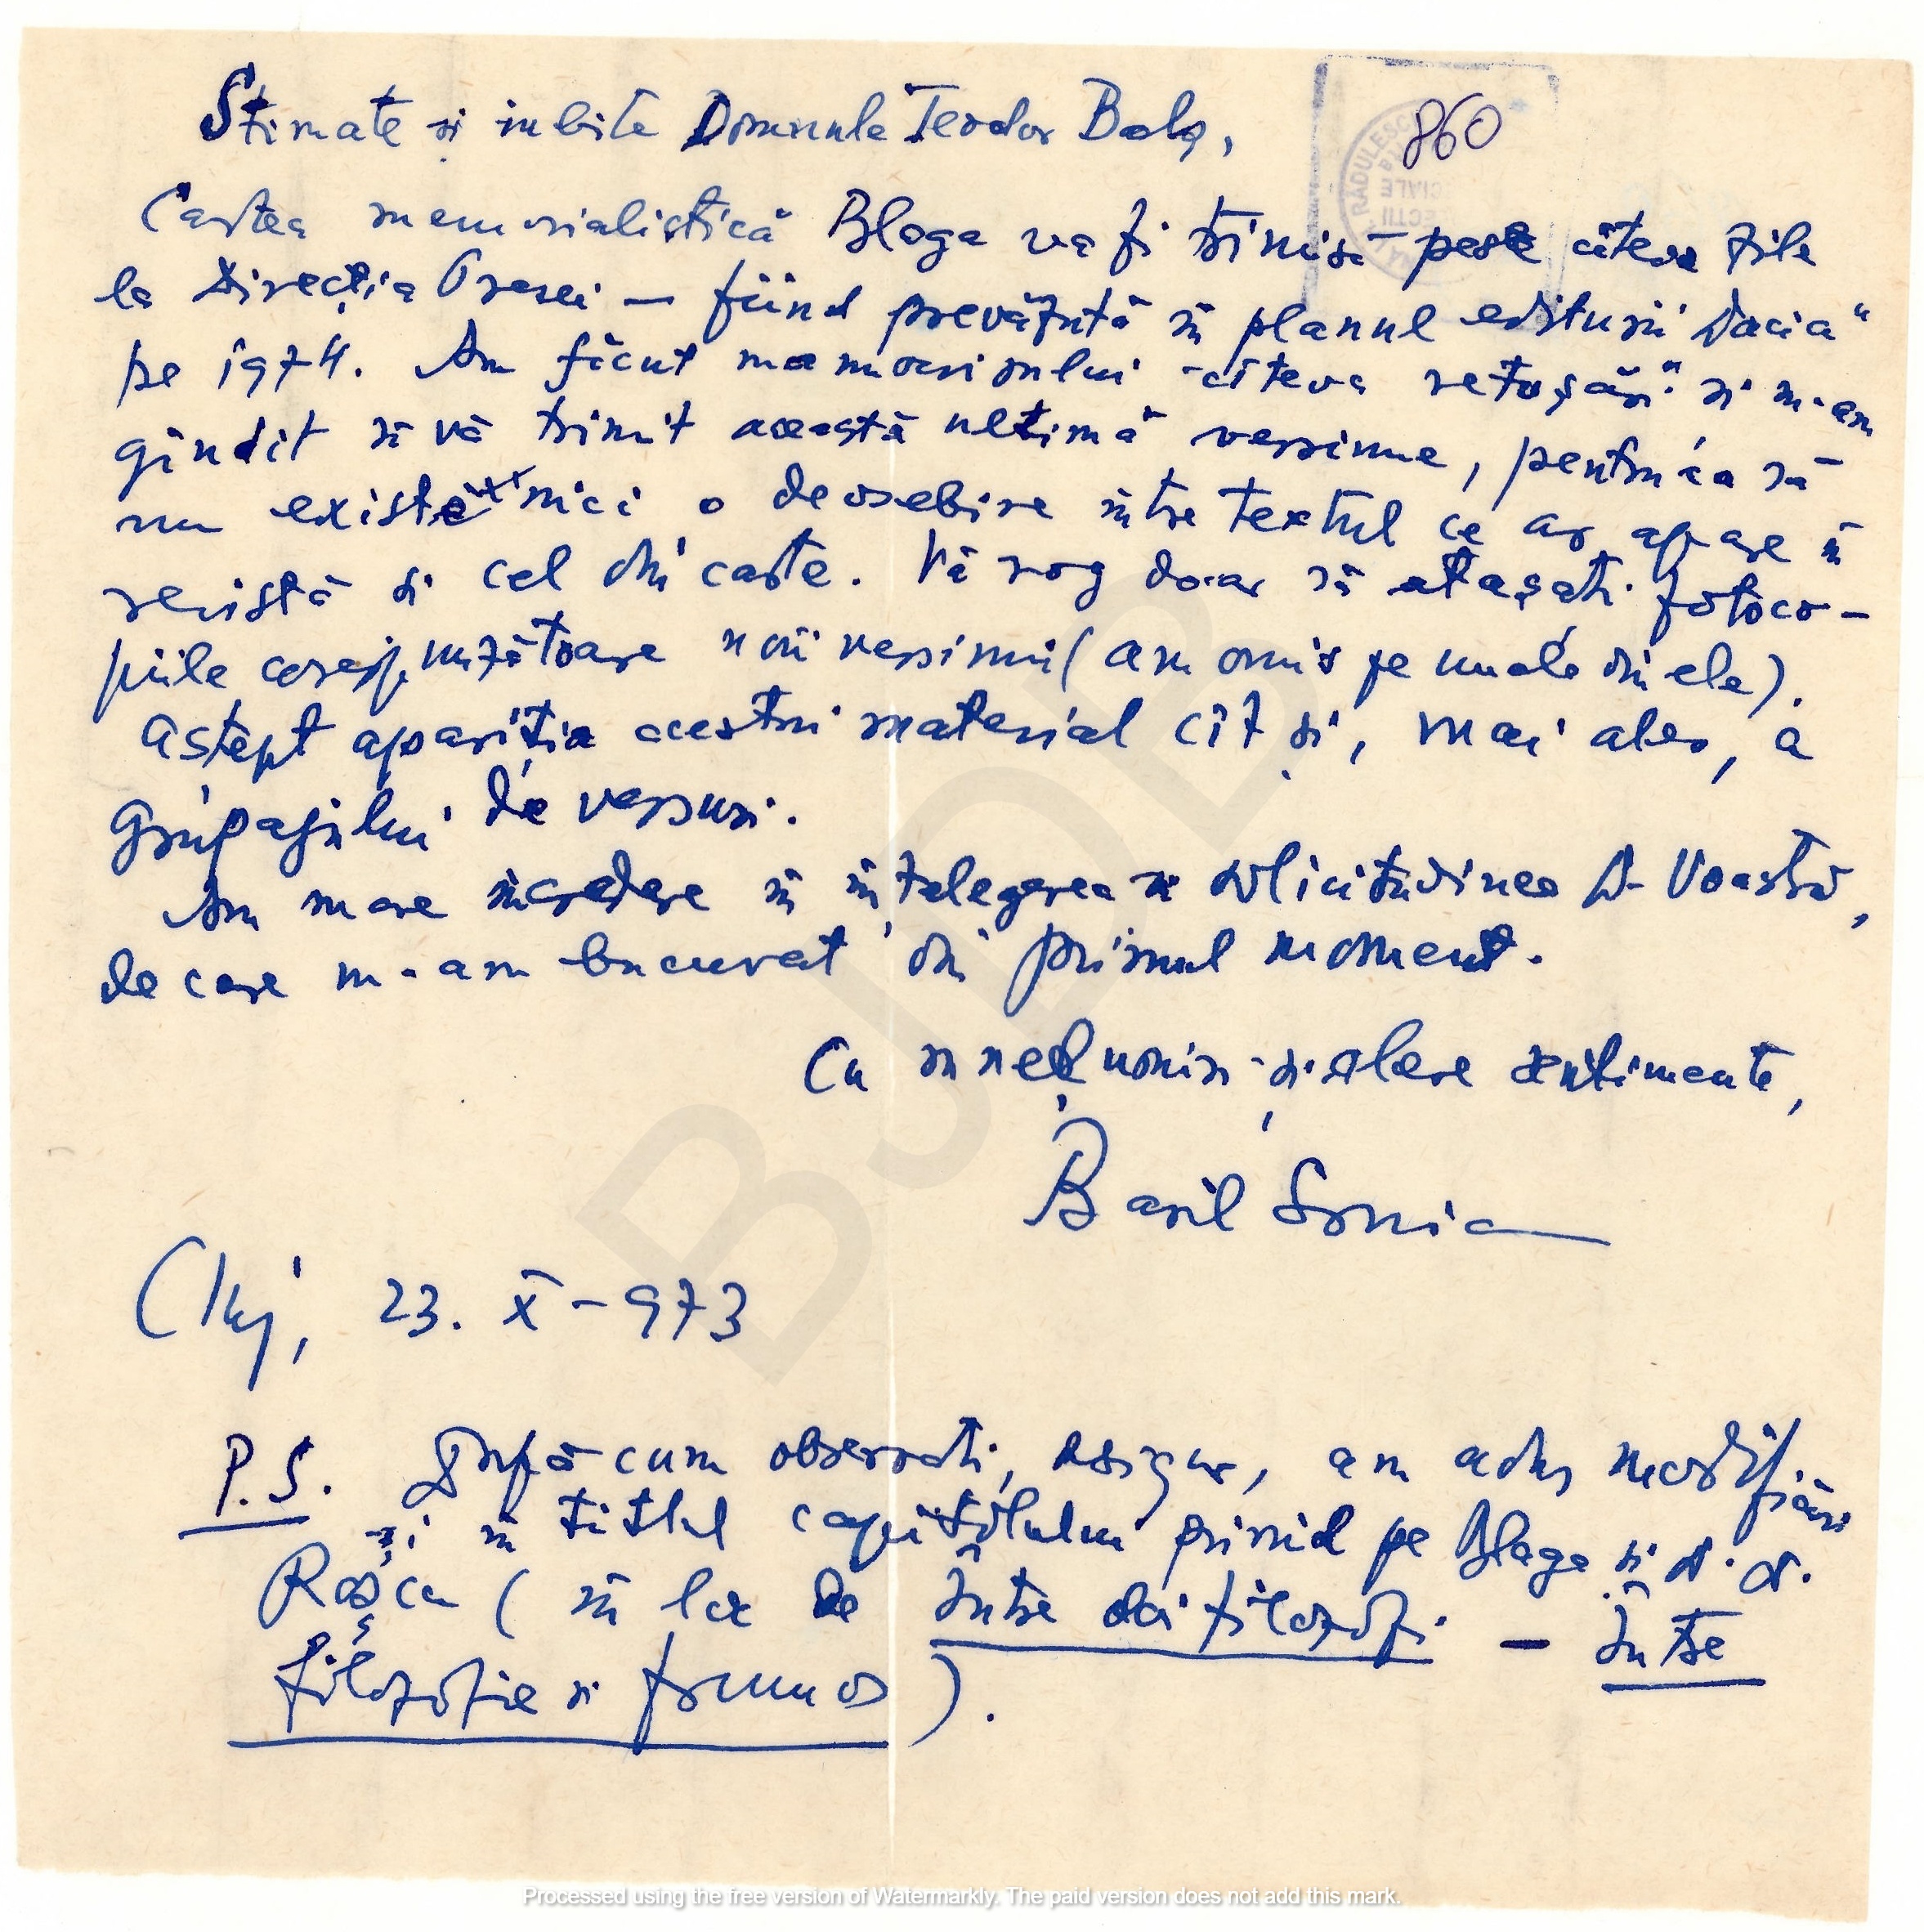 860
Stimate și iubite Domnule Teodor Balș,
Cartea memorialistică Blaga va fi trimisă peste cîteva zile
la Direcția Presei — fiind prevăzută în planul editurii "Dacia"
pe 1974. Am făcut manuscrisului "cîteva retușări" și m-am
gîndit să vă trimit această ultimă versiune, pentru ca să
nu existe nici o deosebire între textul ce ar apare în
revistă și cel din carte. Vă rog doar să atașați fotoco-
piile corespunzătoare noii versiuni (am omis pe unele din ele).
Aștept apariția acestui material cît și, mai ales, a
grupajului de versuri.
Am mare încredere în înțelegerea și solicitudinea D-Voastră,
de care m-am bucurat din primul moment.
Cu și alese sentimente,
Basil Gruia
Cluj, 23. X - 973
P.S. După cum observați, desigur, am adus modificări
și în titlul capitolului privind pe Blaga și D. D.
Roșca (în loc de Între doi filozofi — Între
filozofie și frumos).
BJDB
RĂDULESCU
Processed using the free version of Watermarkly. The paid version does not add this mark.